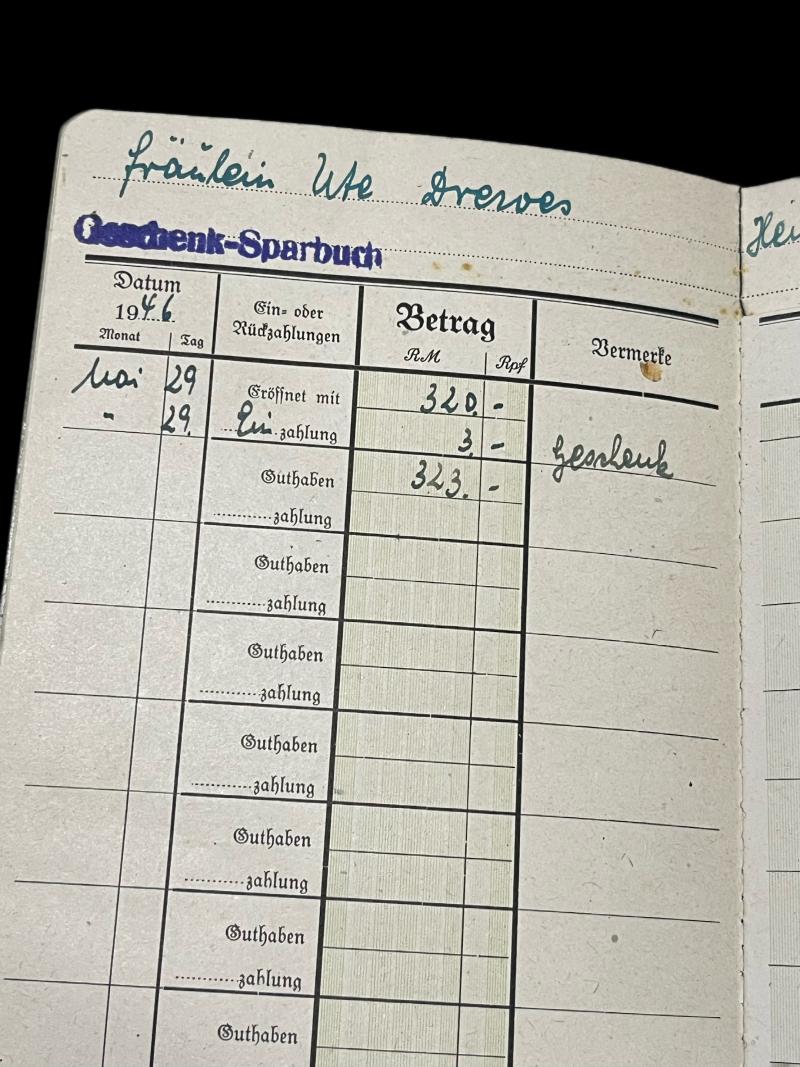 Fräulein Ute Drewes
Hei
Geschenk-Sparbuch
Datum
1946
Monat Tag
Ein- oder
Rückzahlungen
Betrag
RM Rpf
Vermerke
Mai 29 Eröffnet mit 320. -
" 29. Ein zahlung 3. - Geschenk
Guthaben 323. -
zahlung
Guthaben
zahlung
Guthaben
zahlung
Guthaben
zahlung
Guthaben
zahlung
Guthaben
zahlung
Guthaben